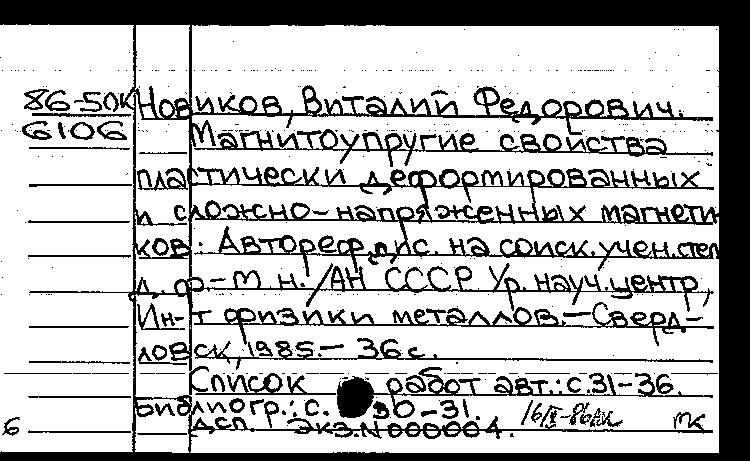 86-50К Новиков, Виталий Федорович.
6106 Магнитоупругие свойства
пластически деформированных
и сложно-напряженных магнети
ков: Автореф. дис. на соиск. учен. степ
д. ф.-м н. /АН СССР Ур. науч. центр,
Ин-т физики металлов.-Сверд-
ловск, 1985.- 36с.
Список работ авт.: с.31-36.
Библиогр.: с. 30-31.
6 Дсп. Экз.N000004.